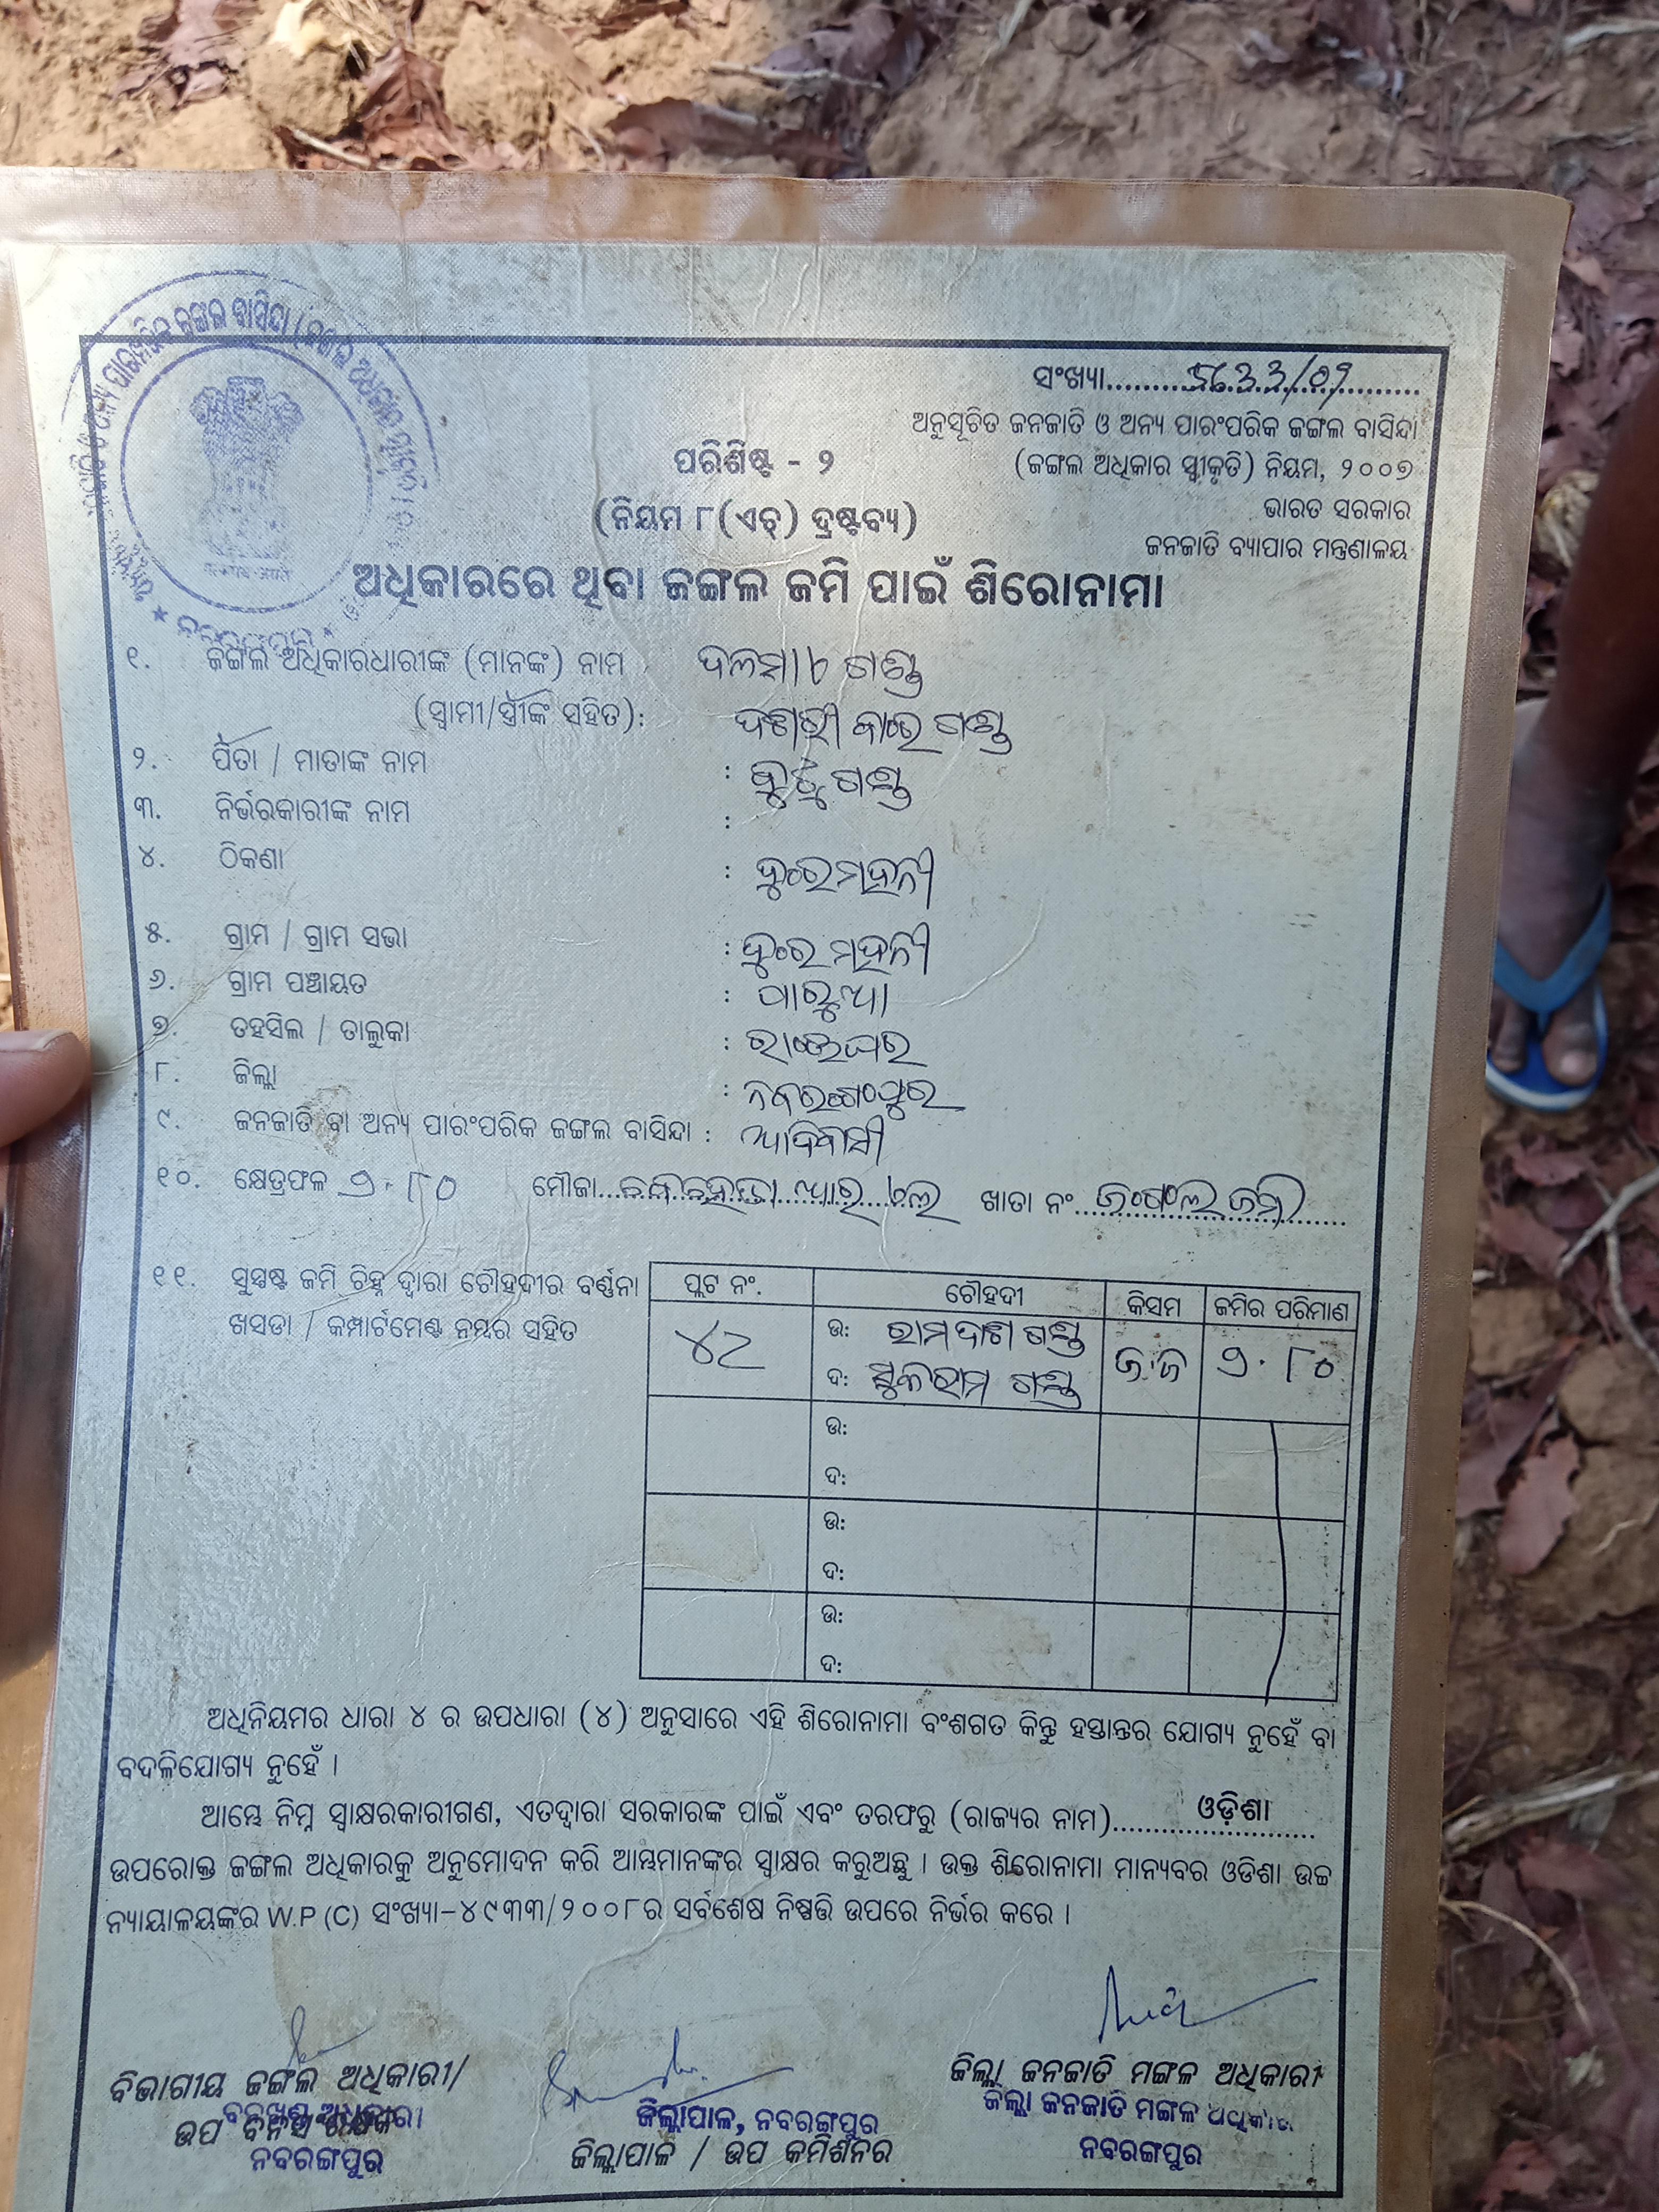 ସଂଖ୍ୟା
ଅନୁସୂଚିତ ଜନଜାତି ଓ ଅନ୍ୟ ପାରଂପରିକ ଜଙ୍ଗଲ ବାସିନ୍ଦା
(ଜଙ୍ଗଲ ଅଧିକାର ସ୍ୱୀକୃତି) ନିୟମ, ୨୦୦୭
ଭାରତ ସରକାର
ଜନଜାତି ବ୍ୟାପାର ମନ୍ତ୍ରଣାଳୟ
ପରିଶିଷ୍ଟ - ୨
(ନିୟମ ୮(ଏଚ୍) ଦ୍ରଷ୍ଟବ୍ୟ)
ଅଧିକାରରେ ଥିବା ଜଙ୍ଗଲ ଜମି ପାଇଁ ଶିରୋନାମା
୧. ଜଙ୍ଗଲ ଅଧିକାରଧାରୀଙ୍କ (ମାନଙ୍କ) ନାମ ଗଣ୍ଡ
(ସ୍ୱାମୀ/ସ୍ତ୍ରୀଙ୍କ ସହିତ): ଗଣ୍ଡ
୨. ପିତା / ମାତାଙ୍କ ନାମ : ଗଣ୍ଡ
୩. ନିର୍ଭରକାରୀଙ୍କ ନାମ :
୪. ଠିକଣା :
୫. ଗ୍ରାମ / ଗ୍ରାମ ସଭା :
୬. ଗ୍ରାମ ପଞ୍ଚାୟତ :
୭. ତହସିଲ / ତାଲୁକା : ରାଇଘର
୮. ଜିଲ୍ଲା : ନବରଙ୍ଗପୁର
୯. ଜନଜାତି ବା ଅନ୍ୟ ପାରଂପରିକ ଜଙ୍ଗଲ ବାସିନ୍ଦା : ଆଦିବାସୀ
୧୦. କ୍ଷେତ୍ରଫଳ ୨.୮୦ ମୌଜା ଖାତା ନଂ ଜଂଗଲ ଜମି
୧୧. ସୁସ୍ପଷ୍ଟ ଜମି ଚିହ୍ନ ଦ୍ୱାରା ଚୌହଦୀର ବର୍ଣ୍ଣନା
ଖସଡା / କମ୍ପାର୍ଟମେଣ୍ଟ ନମ୍ବର ସହିତ
ପ୍ଲଟ ନଂ. ଚୌହଦୀ କିସମ ଜମିର ପରିମାଣ
ଉ: ରାମଦାଶ ଗଣ୍ଡ
ଦ: ସୁକରାମ ଗଣ୍ଡ ଜ.ଜ ୨.୮୦
ଉ:
ଦ:
ଉ:
ଦ:
ଉ:
ଦ:
ଅଧିନିୟମର ଧାରା ୪ ର ଉପଧାରା (୪) ଅନୁସାରେ ଏହି ଶିରୋନାମା ବଂଶଗତ କିନ୍ତୁ ହସ୍ତାନ୍ତର ଯୋଗ୍ୟ ନୁହେଁ ବା
ବଦଳିଯୋଗ୍ୟ ନୁହେଁ ।
ଆମ୍ଭେ ନିମ୍ନ ସ୍ୱାକ୍ଷରକାରୀଗଣ, ଏତଦ୍ୱାରା ସରକାରଙ୍କ ପାଇଁ ଏବଂ ତରଫରୁ (ରାଜ୍ୟର ନାମ) ଓଡ଼ିଶା
ଉପରୋକ୍ତ ଜଙ୍ଗଲ ଅଧିକାରକୁ ଅନୁମୋଦନ କରି ଆମ୍ଭମାନଙ୍କର ସ୍ୱାକ୍ଷର କରୁଅଛୁ । ଉକ୍ତ ଶିରୋନାମା ମାନ୍ୟବର ଓଡିଶା ଉଚ୍ଚ
ନ୍ୟାୟାଳୟଙ୍କର W.P (C) ସଂଖ୍ୟା-୪୯୩୩/୨୦୦୮ର ସର୍ବଶେଷ ନିଷ୍ପତ୍ତି ଉପରେ ନିର୍ଭର କରେ ।
ବିଭାଗୀୟ ଜଙ୍ଗଲ ଅଧିକାରୀ/
ଉପ ବନସଂରକ୍ଷକ
ନବରଙ୍ଗପୁର
ଜିଲ୍ଲାପାଳ, ନବରଙ୍ଗପୁର
ଜିଲ୍ଲାପାଳ / ଉପ କମିଶନର
ଜିଲ୍ଲା ଜନଜାତି ମଙ୍ଗଳ ଅଧିକାରୀ
ଜିଲ୍ଲା ଜନଜାତି ମଙ୍ଗଳ ଅଧିକାରୀ
ନବରଙ୍ଗପୁର